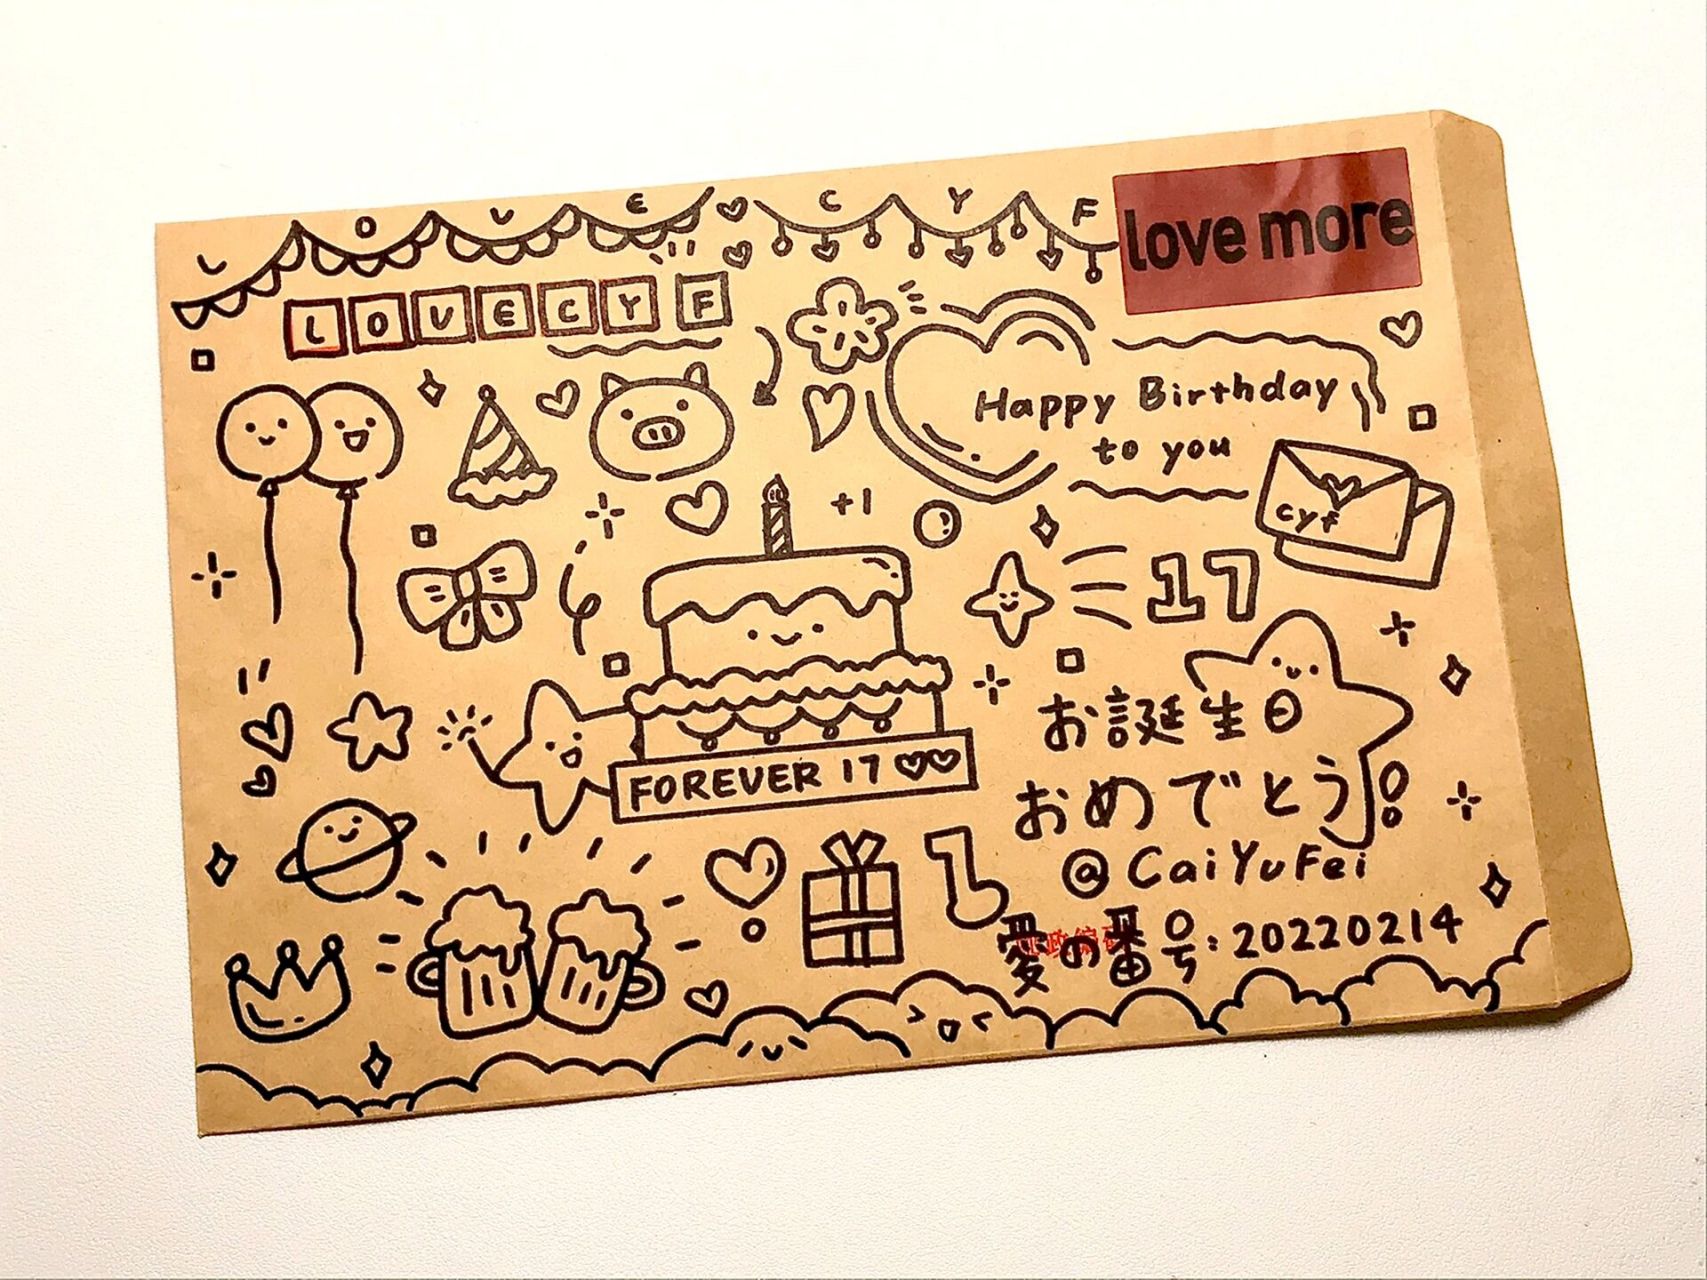 LOVE CYF
love more
LOVECYF
Happy Birthday
to you
cyf
+1
17
お誕生日
おめでとう!
FOREVER 17
@CaiYuFei
愛の番号:20220214